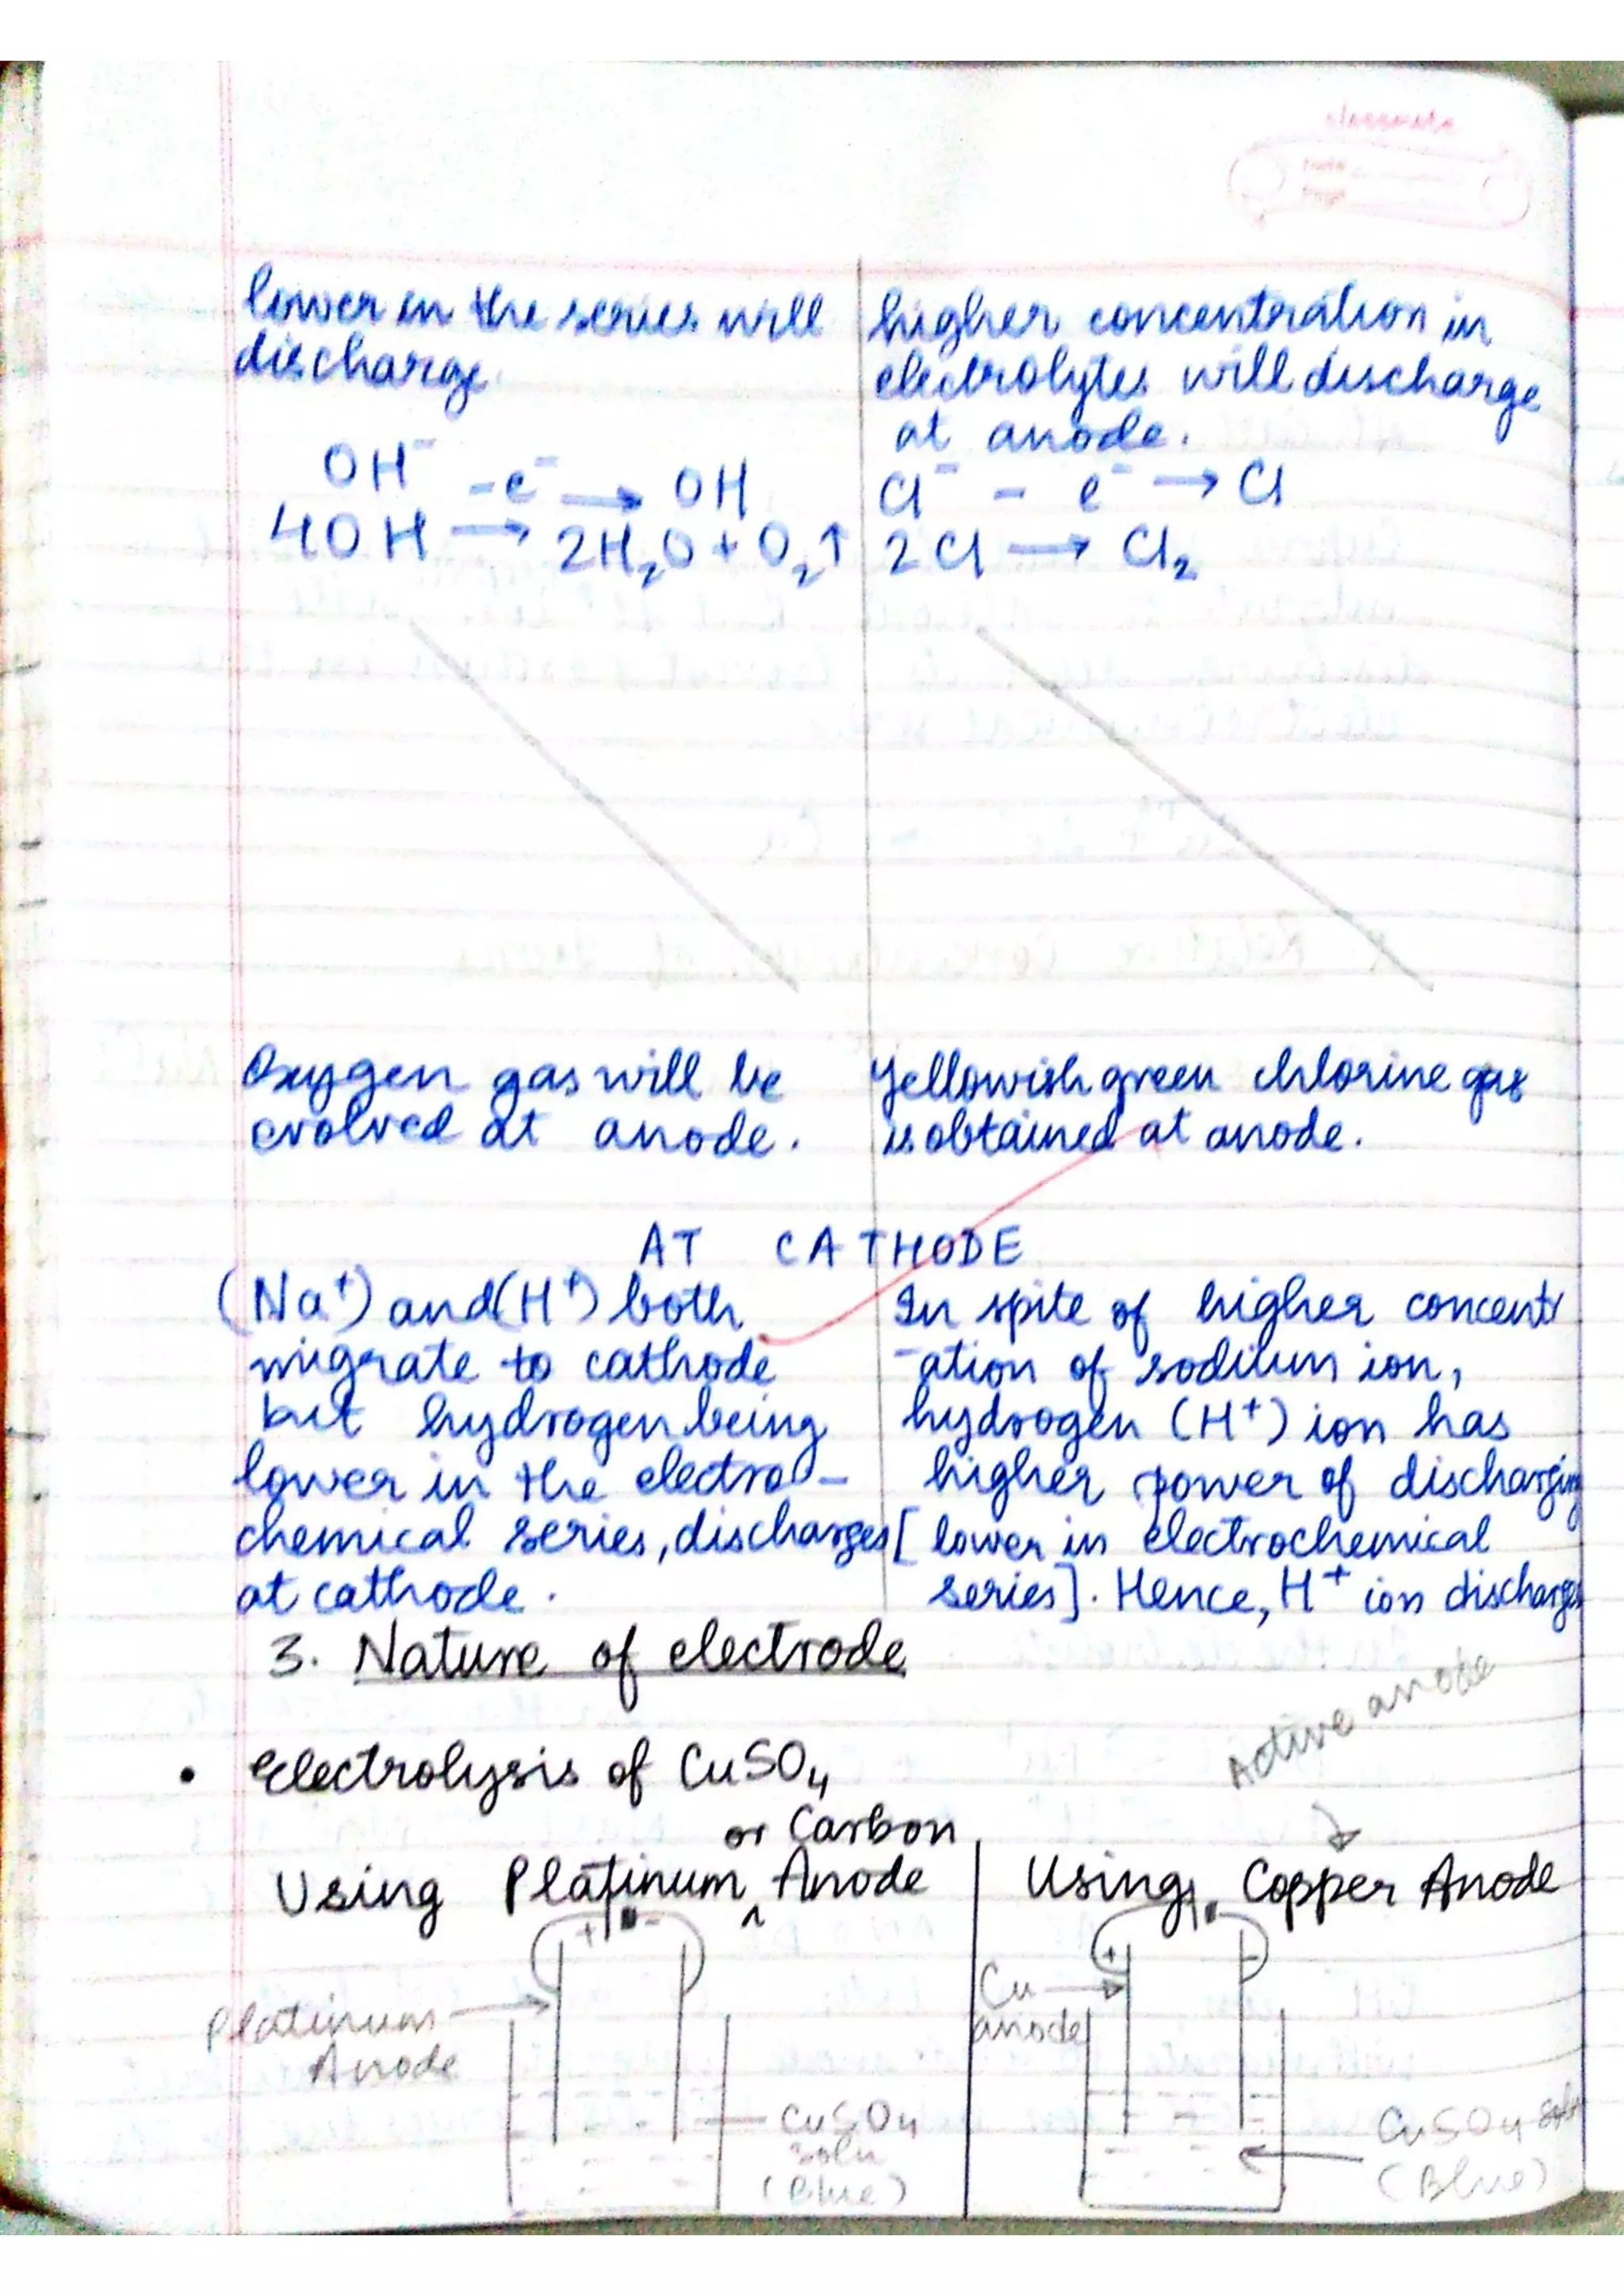 classmate
lower in the series will
discharge.
OH⁻ -e⁻ → OH
4OH → 2H₂O + O₂↑
higher concentration in
electrolytes will discharge
at anode.
Cl⁻ - e⁻ → Cl
2Cl → Cl₂
Oxygen gas will be
evolved at anode.
Yellowish green chlorine gas
is obtained at anode.
AT CATHODE
(Na⁺) and (H⁺) both
migrate to cathode
but hydrogen being
lower in the electro-
chemical series, discharges
at cathode.
In spite of higher concentr
-ation of sodium ion,
hydrogen (H⁺) ion has
higher power of discharging
[lower in electrochemical
series]. Hence, H⁺ ion discharges
3. Nature of electrode
• Electrolysis of CuSO₄
Active anode
or Carbon
Using Platinum ^ Anode
+ -
Platinum
Anode
CuSO₄
soln
(Blue)
Using Copper Anode
+ -
Cu
anode
CuSO₄
(Blue)